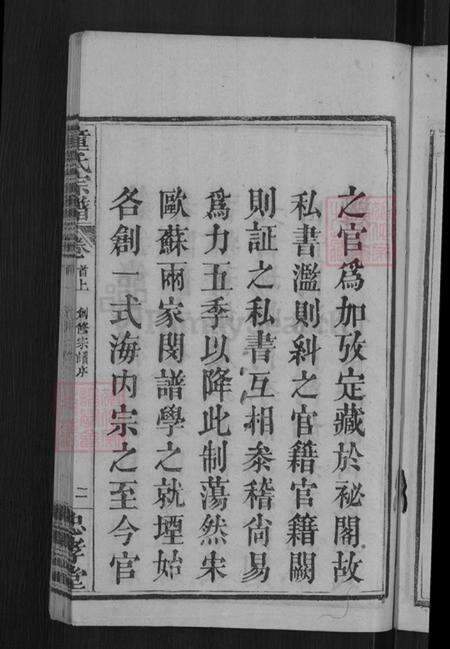 之官爲加攷定藏於祕閣故
私書濫則糾之官籍官籍闕
則証之私書互相叅稽尙易
爲力五季以降此制蕩然宋
歐蘇兩家閔譜學之就堙始
各創一式海內宗之至今官
童氏宗譜
卷首上 創修宗譜序
二
忠孝堂